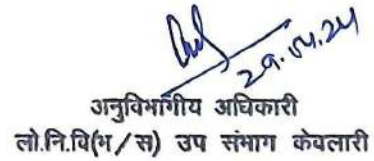 29.04.24
अनुविभागीय अधिकारी
लो.नि.वि(भ/स) उप संभाग केवलारी